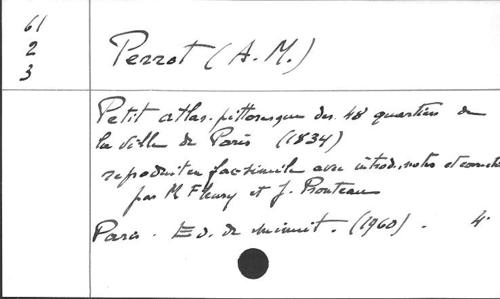 61
2
3
Perrot (A.M.)
Petit atlas pittoresque des 48 quartiers de
la ville de Paris (1834)
reproduit en facsimile avec introd. notes et
par M Fleury et J. Pronteau
Paris. Ed. de minuit. (1960). 4°